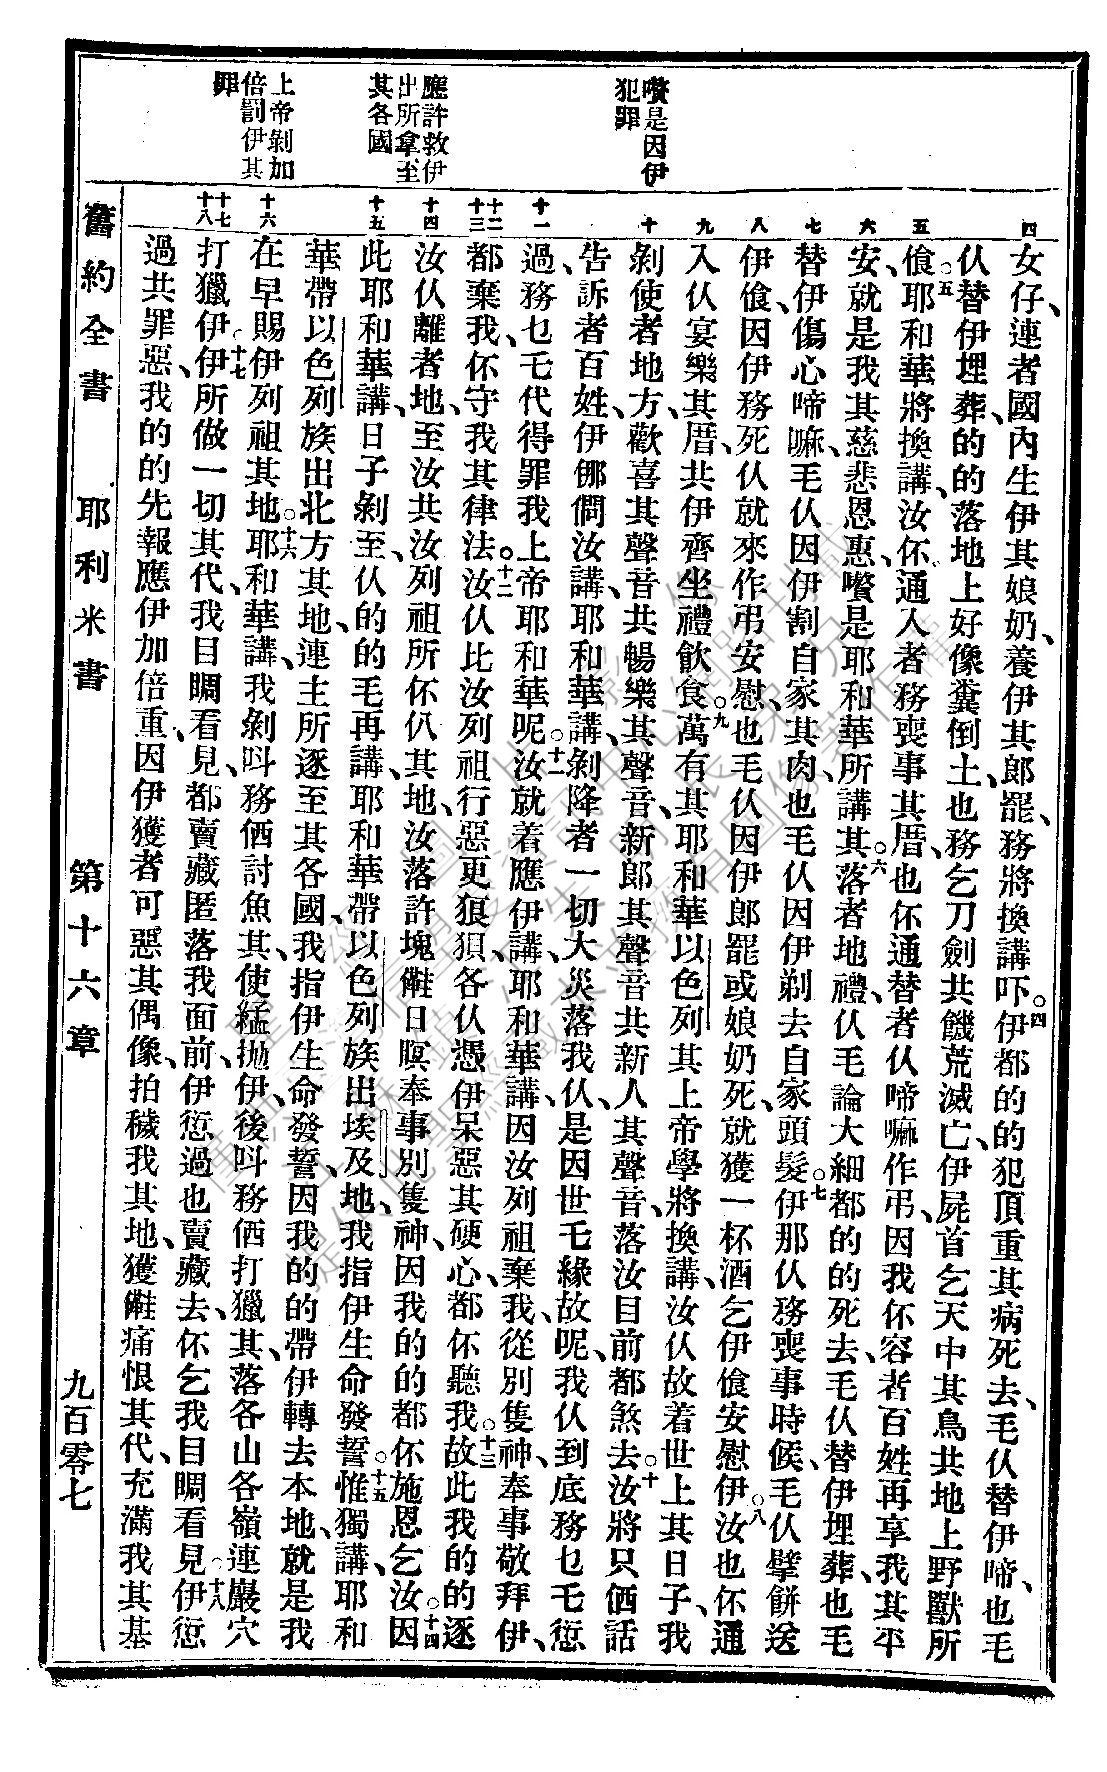 嚽是因伊
犯罪
應許救伊
出所拿至
其各國
上帝剝加
倍罰伊其
罪
四
五
六
七
八
九
十
十一
十二
十三
十四
十五
十六
十七
十八
女仔、連者國內生伊其娘奶、養伊其郎罷、務將換講吓。○四伊都的的犯頂重其病死去、毛仈替伊啼、也毛
仈替伊埋葬、的的落地上好像糞倒土、也務乞刀劍共饑荒滅亡、伊屍首乞天中其鳥共地上野獸所
食。○五耶和華將換講、汝伓通入者務喪事其厝、也伓通替者仈啼嘛作弔、因我伓容者百姓再享我其平
安、就是我其慈悲恩惠、嚽是耶和華所講其。○六落者地禮、仈毛論大細都的的死去、毛仈替伊埋葬、也毛
替伊傷心啼嘛、毛仈因伊割自家其肉、也毛仈因伊剃去自家頭髮。○七伊那仈務喪事時候、毛仈擘餅送
伊食、因伊務死仈就來作弔安慰、也毛仈因伊郎罷或娘奶死、就獲一杯酒乞伊食安慰伊。○八汝也伓通
入仈宴樂其厝、共伊齊坐禮飲食。○九萬有其耶和華以色列其上帝學將換講、汝仈故着世上其日子、我
剝使者地方、歡喜其聲音共暢樂其聲音、新郎其聲音共新人其聲音、落汝目前都煞去。○十汝將只俩話
告訴者百姓、伊㑚僴汝講、耶和華講、剝降者一切大災落我仈、是因世乇緣故呢、我仈到底務乜乇愆
過、務乜乇代得罪我上帝耶和華呢。○十一汝就着應伊講、耶和華講、因汝列祖棄我、從別隻神、奉事敬拜伊、
都棄我、伓守我其律法。○十二汝仈比汝列祖行惡更狼狽、各仈憑伊呆惡其硬心、都伓聽我。○十三故此我的的逐
汝仈離者地、至汝共汝列祖所伓仈其地、汝落許塊㒕日暝奉事別隻神、因我的的都伓施恩乞汝。○十四因
此耶和華講、日子剝至、仈的的毛再講、耶和華帶以色列族出埃及地、我指伊生命發誓。○十五惟獨講、耶和
華帶以色列族出北方其地、連主所逐至其各國、我指伊生命發誓、因我的的帶伊轉去本地、就是我
在早賜伊列祖其地。○十六耶和華講、我剝呌務俩討魚其、使艋拋伊、後呌務俩打獵其、落各山各嶺連巖穴
打獵伊。○十七伊所做一切其代、我目睭看見、都賣藏匿落我面前、伊愆過也賣藏去、伓乞我目睭看見。○十八伊愆
過共罪惡、我的的先報應伊加倍重、因伊獲者可惡其偶像、拍穢我其地、獲㒕痛恨其代、充滿我其基
舊約全書　耶利米書　第十六章　九百零七